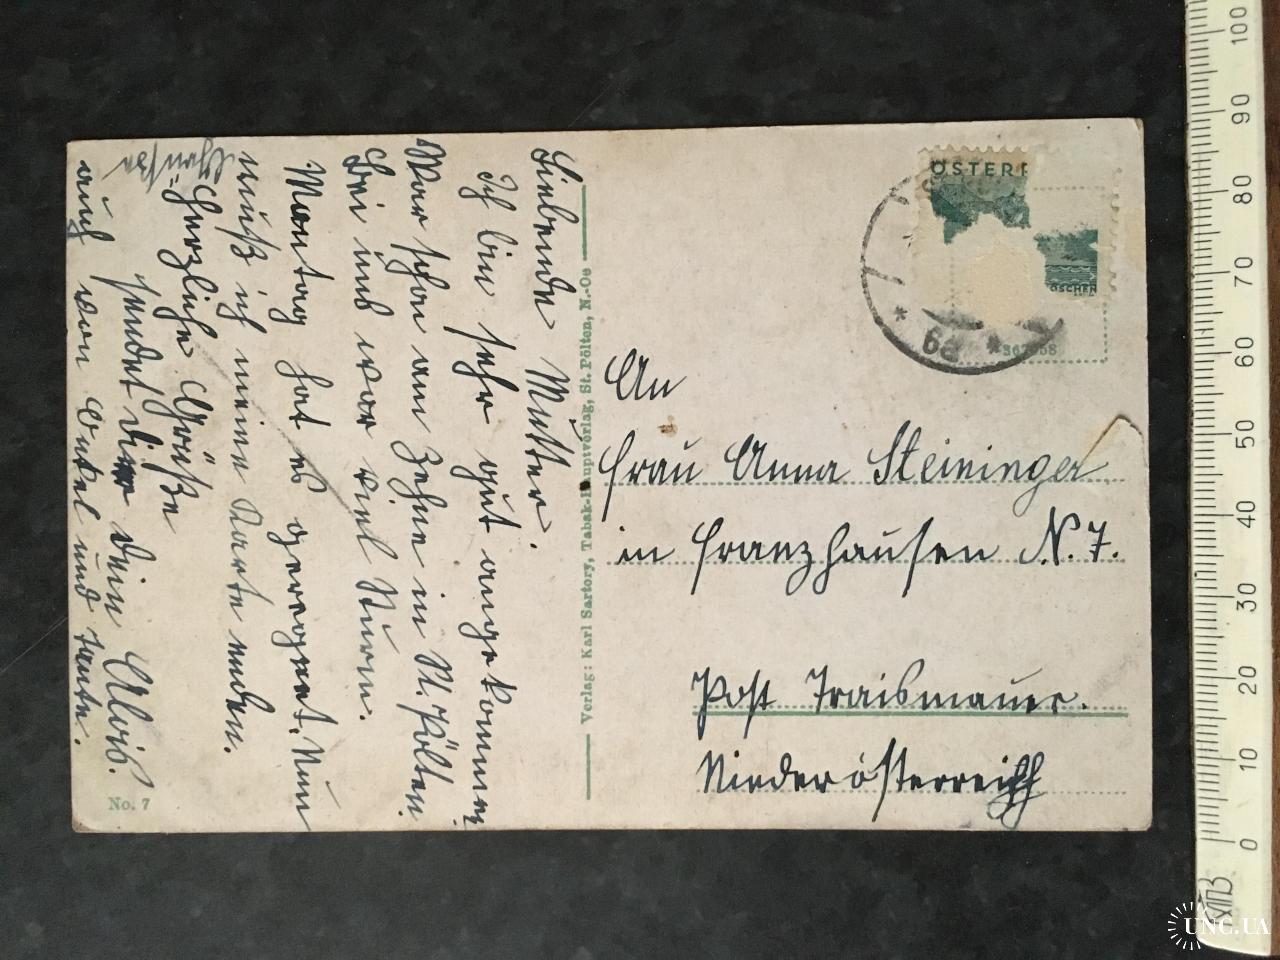 Liebende Mutter.
Ich bin sehr gut angekommen.
War schon um Zehne in St. Pölten.
Bei uns war viel
Montag hat es geregnet. Nun
muß ich meine Karte enden.
Herzliche Grüße
sendet Dir dein Alois.
auch von Onkel und Tante.
No. 7
Verlag: Karl Sartory, Tabak-Hauptverlag, St. Pölten, N.-Oe
ÖSTERR
OSCHEN
* 6a *
An
Frau Anna Steininger
in Franzhausen N. 7.
Post Traismauer.
Niederösterreich
100
90
80
70
60
50
40
30
20
10
0
UNC.UA